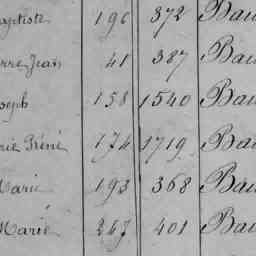 aptiste 196 372 Bau
erre Jean 41 387 Bau
oseph 158 1540 Bau
rie Réné 174 1719 Bau
Marie 193 368 Bau
Marie 247 401 Bau